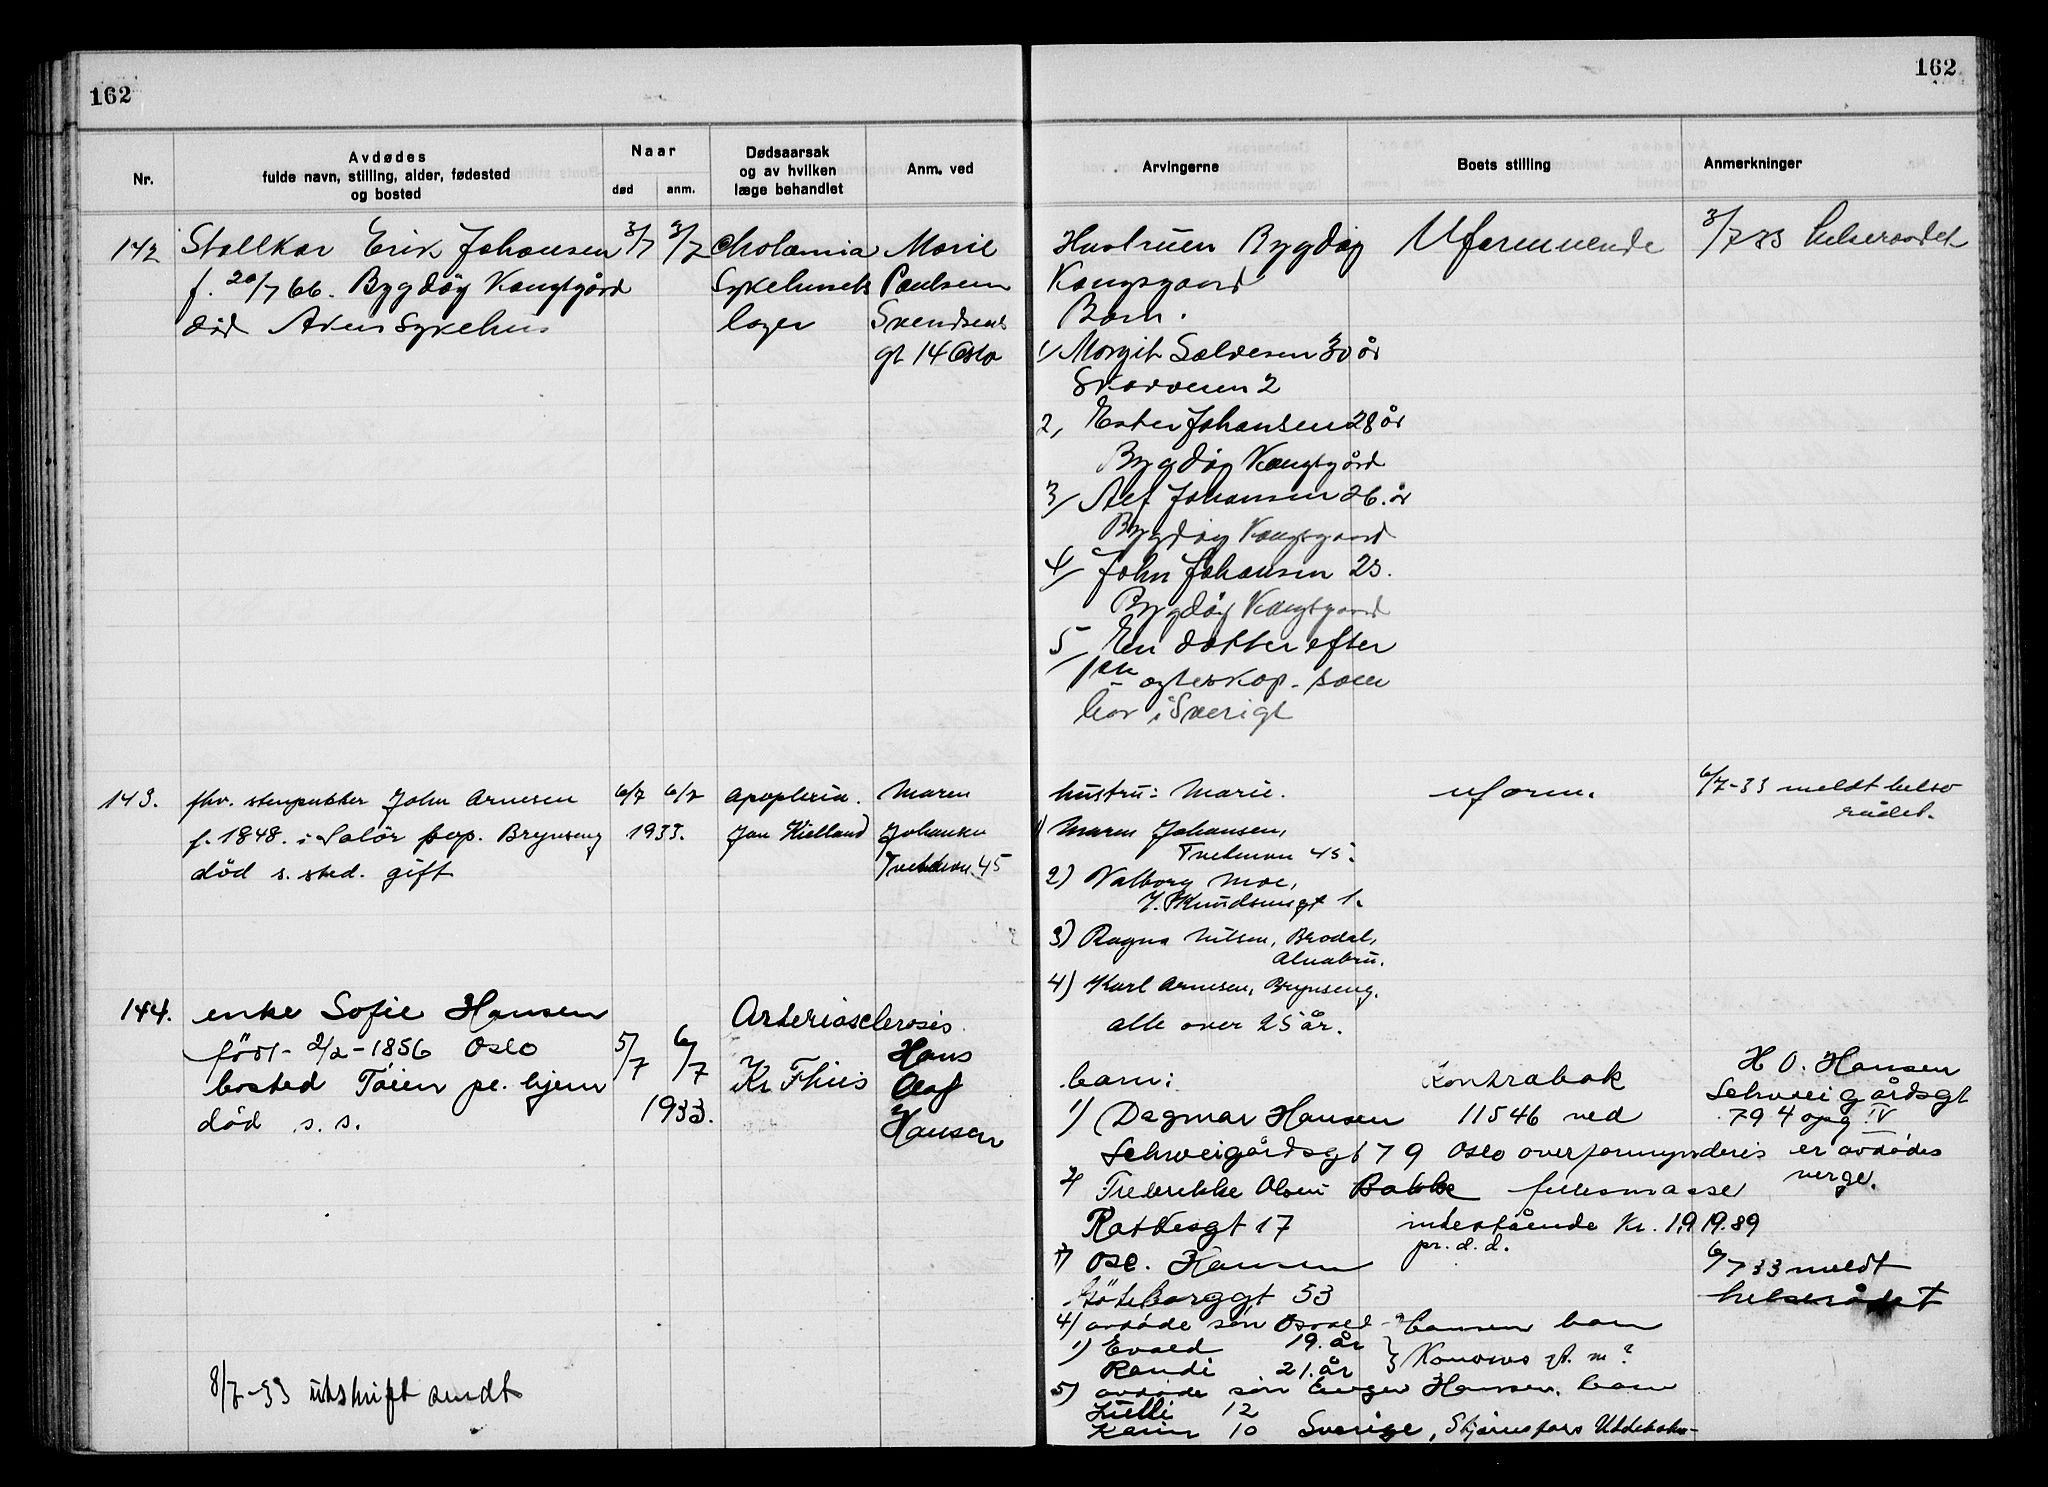 162
162
Nr.
Avdødes
fulde navn, stilling, alder, fødested
og bosted
Naar
død
anm.
Dødsaarsak
og av hvilken
læge behandlet
Anm. ved
Arvingerne
Boets stilling
Anmerkninger
142 Stallkar Erik Johansen 3/7 3/7 Cholæmia Marie
f. 20/7 66. Bygdøy Kongsgård Sykehusets Paulsen
død Akers sykehus læger Svendsens
gt 14 Oslo
Hustruen Bygdøy Uformuende 3/7 33 helseraadet
Kongsgaard
Barn.
1/ Margit Salvesen 30 år
2
2, Ester Johansen 28 år
Bygdøy Kongsgård
3/ Alf Johansen 26. år
Bygdøy Kongsgaard
4/ John Johansen 23.
Bygdøy Kongsgaard
5/ En datter efter
1ste ægteskap. som
bor i Sverige
143. fhv. stenpukker John Arnesen 6/7 6/7 apoplexia. Maren
f. 1848. i Solør pop. Brynseng 1933. Jan Kielland Johansen
død s. sted. gift 45
hustru: Marie. uform. 6/7-33 meldt helse
rådet.
1) Maren Johansen,
45.
2) Valborg Moe,
Knudsensgt 1.
3) Ragna Nilsen, Brodal,
Alnabru.
4) Karl Arnesen, Brynseng.
alle over 25 år.
144. enke Sofie Hansen Arteriosclerosis
født 2/2-1856 Oslo 5/7 6/7 Hans
bosted Tøien pl. hjem Kr. Thiis Olaf
død s. s. 1933. Hansen
barn: Kontrabok H O. Hansen
1) Dagmar Hansen 11546 ved Schweigårdsgt
79 4 opg IV
Schweigårdsgt 79 Oslo overformynderis er avdødes
2) Frederikke Olsen Bakke fellesmasse verge.
Ratkesgt 17 indestående Kr. 1,919.89
pr. d. d.
3) Osc. Hansen 6/7 33 meldt
Göteborggt 53 helserådet
4) avdøde søn Osvald Hansen barn
1) Evald 19. år
Randi 21. år
5) avdøde søn Hansen. barn
Lilli 12
Karin 10 Sverige,
8/7-33 utskrift sendt